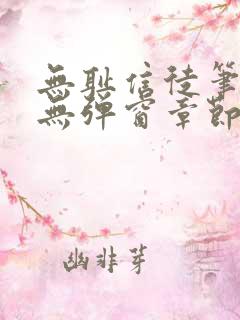 無恥信徒筆
無彈窗章節
幽非芽